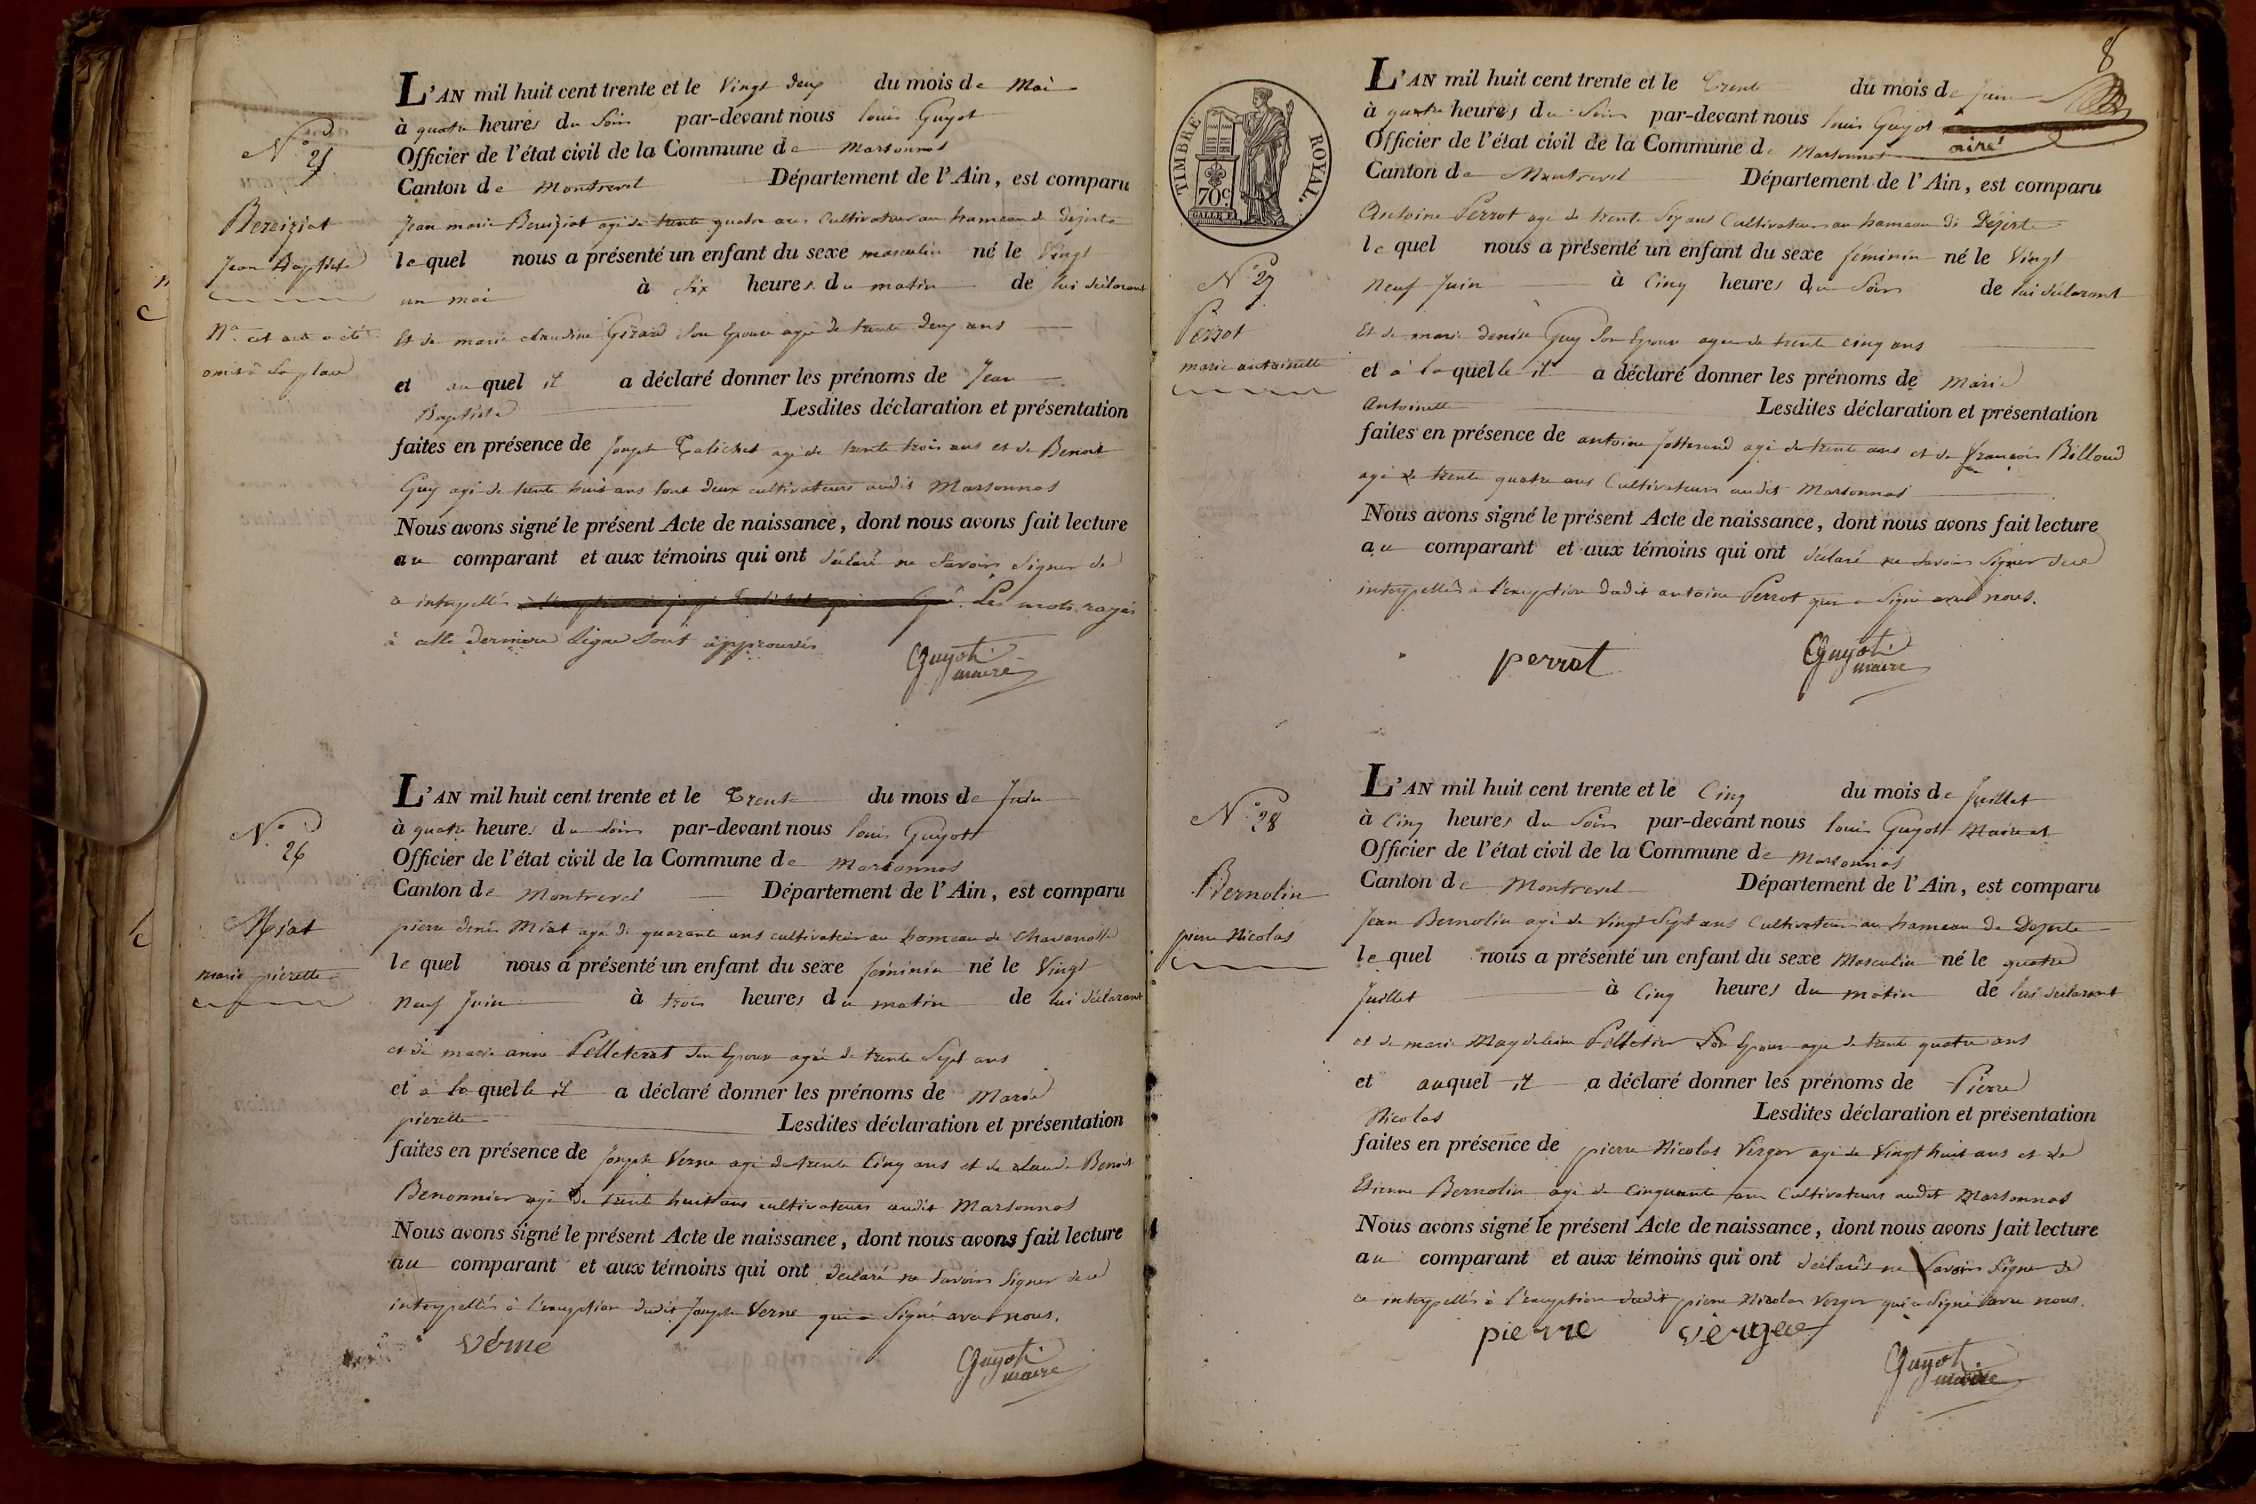 L'AN mil huit cent trente et le Vingt deux du mois de Mai
à quatre heures du Soir par-devant nous louis Guyot
Officier de l'état civil de la Commune de Marsonnas
Canton de Montrevel Département de l'Ain, est comparu
Jean marie Bereiziat agé de trente quatre ans Cultivateur au hameau de dejerte
lequel nous a présenté un enfant du sexe masculin né le Vingt
un mai à Six heures du matin de lui déclarant
Et de marie claudine Girard Son Epouse agée de trente deux ans
et auquel il a déclaré donner les prénoms de Jean
Baptiste Lesdites déclaration et présentation
faites en présence de Joseph Talichet agé de trente trois ans et de Benoit
Guy agé de trente huit ans tout deux cultivateurs audit Marsonnas
Nous avons signé le présent Acte de naissance, dont nous avons fait lecture
au comparant et aux témoins qui ont déclaré ne Savoir Signer de
ce interpellés Les mots rayés
à cette derniere Ligne Sont approuvés
Guyot
maire
N.º 25
Bereiziat
Jean Baptiste
Nª cet acte a été
omis à Sa place
L'AN mil huit cent trente et le Trente du mois de Juin
à quatre heures du Soir par-devant nous louis Guyot
Officier de l'état civil de la Commune de Marsonnas
Canton de Montrevel Département de l'Ain, est comparu
pierre denis Miat agé de quarante ans cultivateur au hameau de Chavanotte
lequel nous a présenté un enfant du sexe féminin né le Vingt
Neuf Juin à trois heures du matin de lui déclarant
et de marie anne Pelleterat Son Epouse agée de trente Sept ans
et à laquelle il a déclaré donner les prénoms de Marie
pierette Lesdites déclaration et présentation
faites en présence de Joseph Verne agé de trente Cinq ans et de claude Benoit
Benonnier agé de trente huit ans cultivateurs audit Marsonnas
Nous avons signé le présent Acte de naissance, dont nous avons fait lecture
au comparant et aux témoins qui ont déclaré ne Savoir Signer de ce
interpellés à l'exception dudit Joseph Verne qui a Signé avec nous.
verne
Guyot
maire
N.º 26
Miat
marie pierette
8
TIMBRE ROYAL.
70c
L'AN mil huit cent trente et le Trente du mois de Juin
à quatre heures du Soir par-devant nous louis Guyot
Officier de l'état civil de la Commune de Marsonnas
Canton de Montrevel Département de l'Ain, est comparu
Antoine Perrot agé de trente Six ans Cultivateur au hameau de Déjerte
lequel nous a présenté un enfant du sexe féminin né le Vingt
Neuf Juin à Cinq heures du Soir de lui déclarant
Et de marie denise Guy Son Epouse agée de trente cinq ans
et à laquelle il a déclaré donner les prénoms de Marie
Antoinette Lesdites déclaration et présentation
faites en présence de antoine Jotterand agé de trente ans et de françois Billoud
agé de trente quatre ans Cultivateurs audit Marsonnas
Nous avons signé le présent Acte de naissance, dont nous avons fait lecture
au comparant et aux témoins qui ont déclaré ne Savoir Signer de ce
interpellés à l'exception dudit antoine Perrot qui a Signé avec nous.
perrot
Guyot
maire
N.º 27
Perrot
marie antoinette
L'AN mil huit cent trente et le Cinq du mois de Juillet
à Cinq heures du Soir par-devant nous louis Guyot Maire et
Officier de l'état civil de la Commune de Marsonnas
Canton de Montrevel Département de l'Ain, est comparu
Jean Bernolin agé de Vingt Sept ans Cultivateur au hameau de Dejerte
lequel nous a présenté un enfant du sexe Masculin né le quatre
Juillet à Cinq heures du matin de lui déclarant
et de marie Magdeleine Pelletier Son Epouse agée de trente quatre ans
et auquel il a déclaré donner les prénoms de Pierre
Nicolas Lesdites déclaration et présentation
faites en présence de pierre Nicolas Verger agé de Vingt huit ans et de
Etienne Bernolin agé de Cinquante ans Cultivateurs audit Marsonnas
Nous avons signé le présent Acte de naissance, dont nous avons fait lecture
au comparant et aux témoins qui ont déclarés ne Savoir Signer de
ce interpellés à l'exception dudit pierre Nicolas Verger qui a Signé avec nous.
pierre verger
Guyot
maire
N.º 28
Bernolin
pierre Nicolas